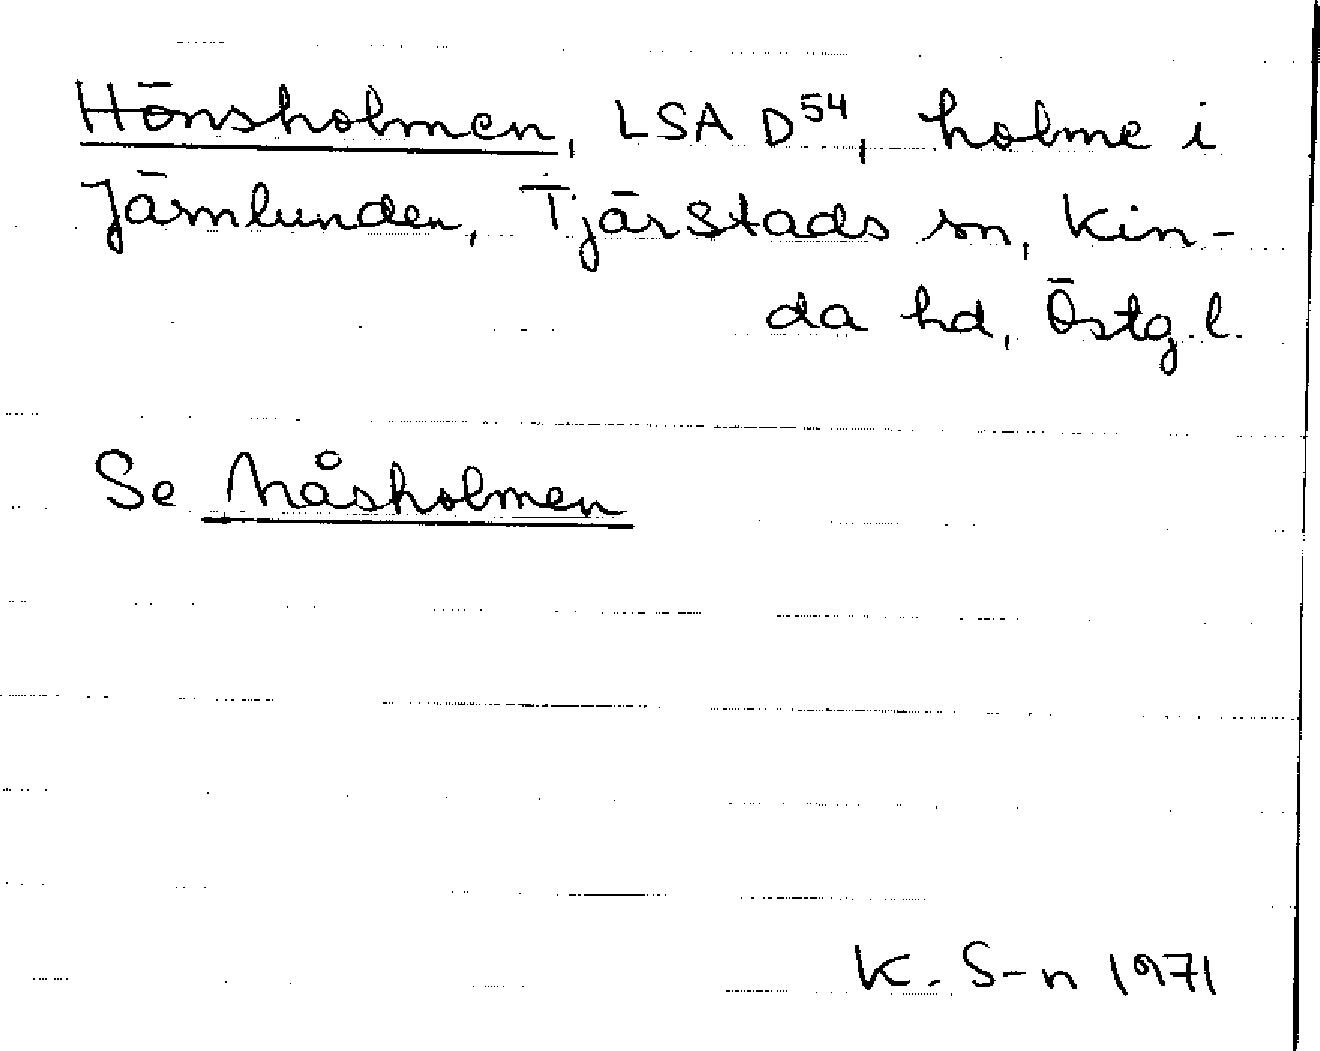 Hönsholmen, LSA D⁵⁴, holme i
Järnlunden, Tjärstads sn, Kin-
da hd, Östg.l.
Se Måsholmen
K. S-n 1971